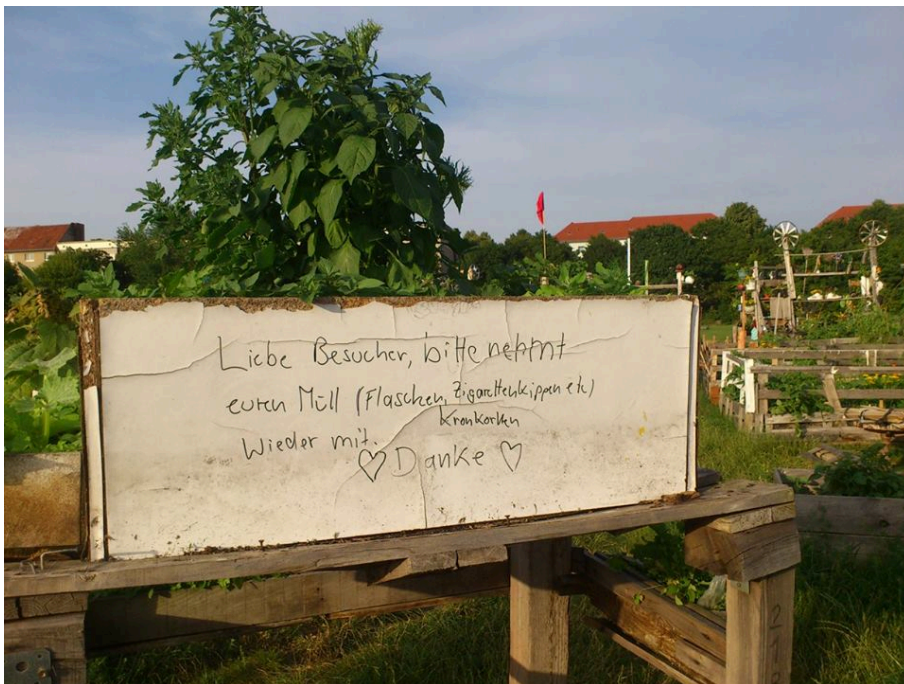 Liebe Besucher, bitte nehmt
euren Müll (Flaschen, Zigarettenkippen etc)
Kronkorken
Wieder mit.
♡ Danke ♡